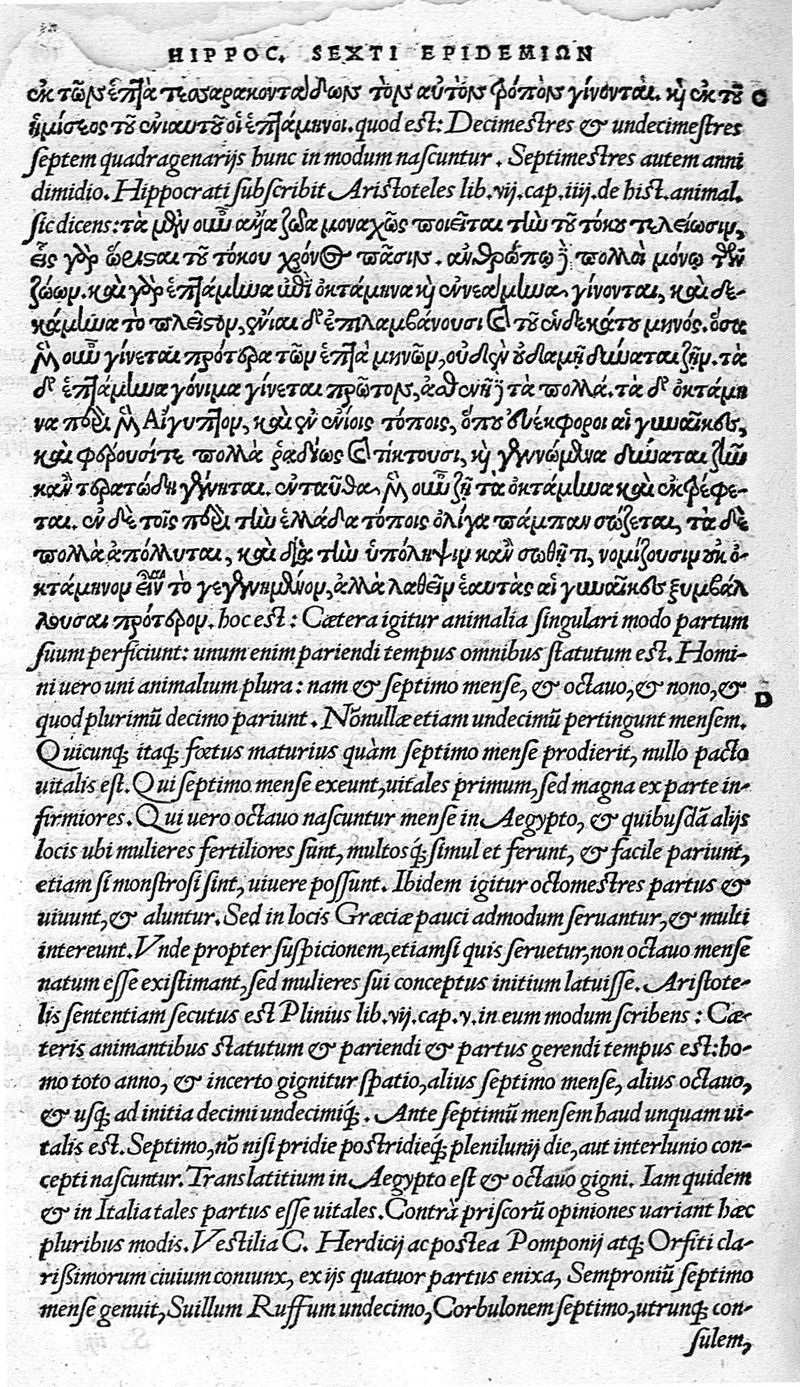 HIPPOC. SEXTI EPIDEMIΩN
ἐκ τῶν ἑπτὰ τεσσαρακοντάδων τὸν αὐτὸν τρόπον γίνονται. καὶ ἐκ τοῦ C
ἡμίσεος τοῦ ἐνιαυτοῦ οἱ ἑπτάμηνοι. quod est: Decimestres & undecimestres
septem quadragenarijs hunc in modum nascuntur. Septimestres autem anni
dimidio. Hippocrati subscribit Aristoteles lib. vij. cap. iiij. de hist. animal.
sic dicens: τὰ μὲν οὖν ἄλλα ζῶα μοναχῶς ποιεῖται τὴν τοῦ τόκου τελείωσιν,
εἷς γὰρ ὥρισται τοῦ τόκου χρόνος πᾶσιν. ἀνθρώπῳ δὲ πολλοὶ μόνῳ τῶν
ζώων. καὶ γὰρ ἑπτάμηνα καὶ ὀκτάμηνα καὶ ἐννεάμηνα γίνονται, καὶ δε-
κάμηνα τὸ πλεῖστον, ἔνιαι δ' ἐπιλαμβάνουσι καὶ τοῦ ἑνδεκάτου μηνός. ὅσα
μὲν οὖν γίνεται πρότερα τῶν ἑπτὰ μηνῶν, οὐδὲν οὐδαμῆ δύναται ζῆν. τὰ
δ' ἑπτάμηνα γόνιμα γίνεται πρῶτον, ἀσθενῆ δὲ τὰ πολλά. τὰ δ' ὀκτάμη
να περὶ μὲν Αἴγυπτον, καὶ ἐν ἐνίοις τόποις, ὅπου εὐέκφοροι αἱ γυναῖκες,
καὶ φέρουσί τε πολλὰ ῥᾳδίως καὶ τίκτουσι, καὶ γεννώμενα δύναται ζῆν
κἂν τερατώδη γένηται. ἐνταῦθα μὲν οὖν ζῆ τὰ ὀκτάμηνα καὶ ἐκτρέφε-
ται. ἐν δὲ τοῖς περὶ τὴν ἑλλάδα τόποις ὀλίγα πάμπαν σώζεται, τὰ δὲ
πολλὰ ἀπόλλυται, καὶ διὰ τὴν ὑπόληψιν κἂν σωθῆ τι, νομίζουσιν οὐκ ὀ-
κτάμηνον εἶναι τὸ γεγεννημένον, ἀλλὰ λαθεῖν ἑαυτὰς αἱ γυναῖκες ξυμβαλ
λοῦσαι πρότερον. hoc est: Cætera igitur animalia singulari modo partum
suum perficiunt: unum enim pariendi tempus omnibus statutum est. Homi-
ni uero uni animalium plura: nam & septimo mense, & octauo, & nono, & D
quod plurimũ decimo pariunt. Nõnullæ etiam undecimũ pertingunt mensem.
Quicunq; itaq; fœtus maturius quàm septimo mense prodierit, nullo pacto
uitalis est. Qui septimo mense exeunt, uitales primum, sed magna ex parte in-
firmiores. Qui uero octauo nascuntur mense in Aegypto, & quibusdã alijs
locis ubi mulieres fertiliores sunt, multosq́; simul et ferunt, & facile pariunt,
etiam si monstrosi sint, uiuere possunt. Ibidem igitur octomestres partus &
uiuunt, & aluntur. Sed in locis Græciæ pauci admodum seruantur, & multi
intereunt. Vnde propter suspicionem, etiamsi quis seruetur, non octauo mense
natum esse existimant, sed mulieres sui conceptus initium latuisse. Aristote-
lis sententiam secutus est Plinius lib. vij. cap. v. in eum modum scribens: Cæ-
teris animantibus statutum & pariendi & partus gerendi tempus est: ho-
mo toto anno, & incerto gignitur spatio, alius septimo mense, alius octauo,
& usq; ad initia decimi undecimiq́;. Ante septimũ mensem haud unquam ui-
talis est. Septimo, nõ nisi pridie postridieq́; plenilunij die, aut interlunio con-
cepti nascuntur. Translatitium in Aegypto est & octauo gigni. Iam quidem
& in Italia tales partus esse uitales. Contrà priscorũ opiniones uariant hæc
pluribus modis. Vestilia C. Herdicij ac postea Pomponij atq; Orfiti cla-
rißimorum ciuium coniunx, ex ijs quatuor partus enixa, Semproniũ septimo
mense genuit, Suillum Ruffum undecimo, Corbulonem septimo, utrunq; con-
sulem,